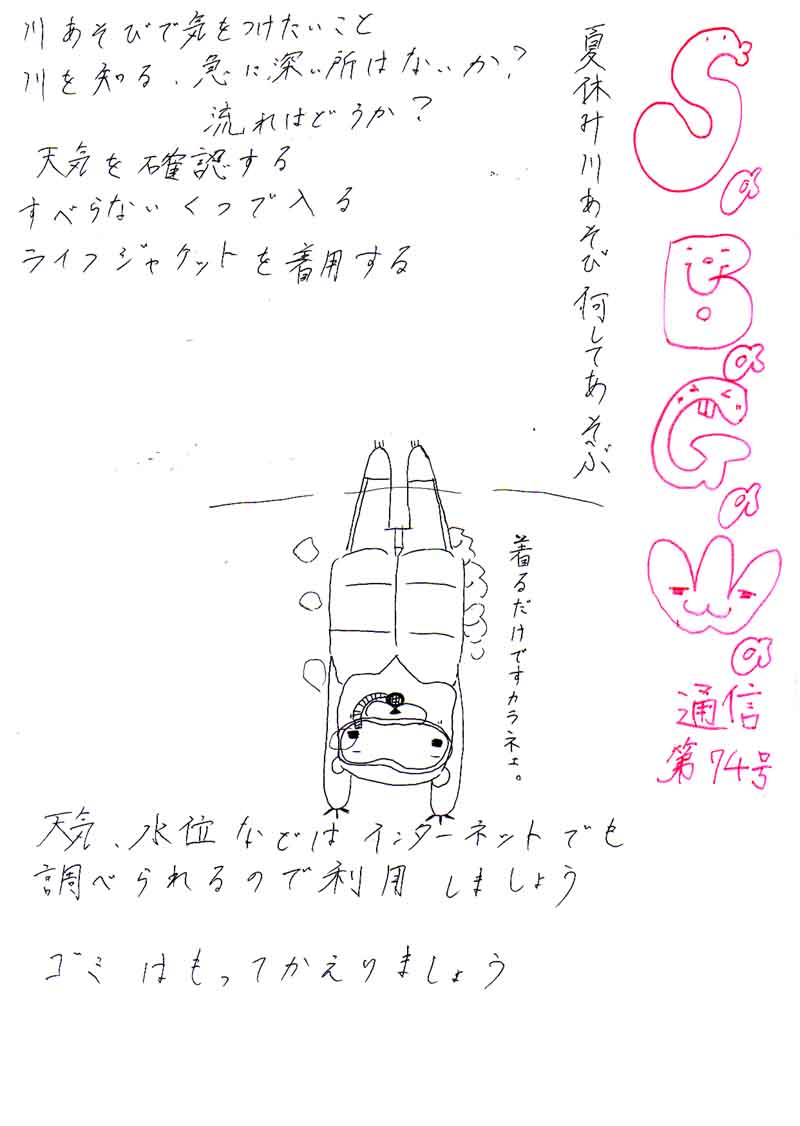 SaBaGaWa
通信
第74号
夏休み川あそび何してあそぶ
川あそびで気をつけたいこと
川を知る、急に深い所はないか？
流れはどうか？
天気を確認する
すべらないくつで入る
ライフジャケットを着用する
着るだけですカラネょ。
天気、水位などはインターネットでも
調べられるので利用しましょう
ゴミはもってかえりましょう